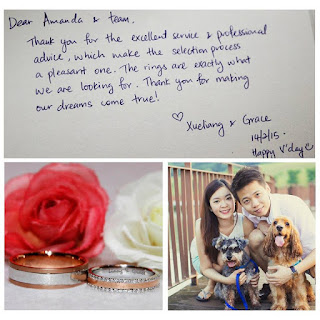 Dear Amanda & team,
Thank you for the excellent service & professional
advice, which make the selection process
a pleasant one. The rings are exactly what
we are looking for. Thank you for making
our dreams come true!
♡ Xueliang & Grace
14/2/15.
Happy V'day